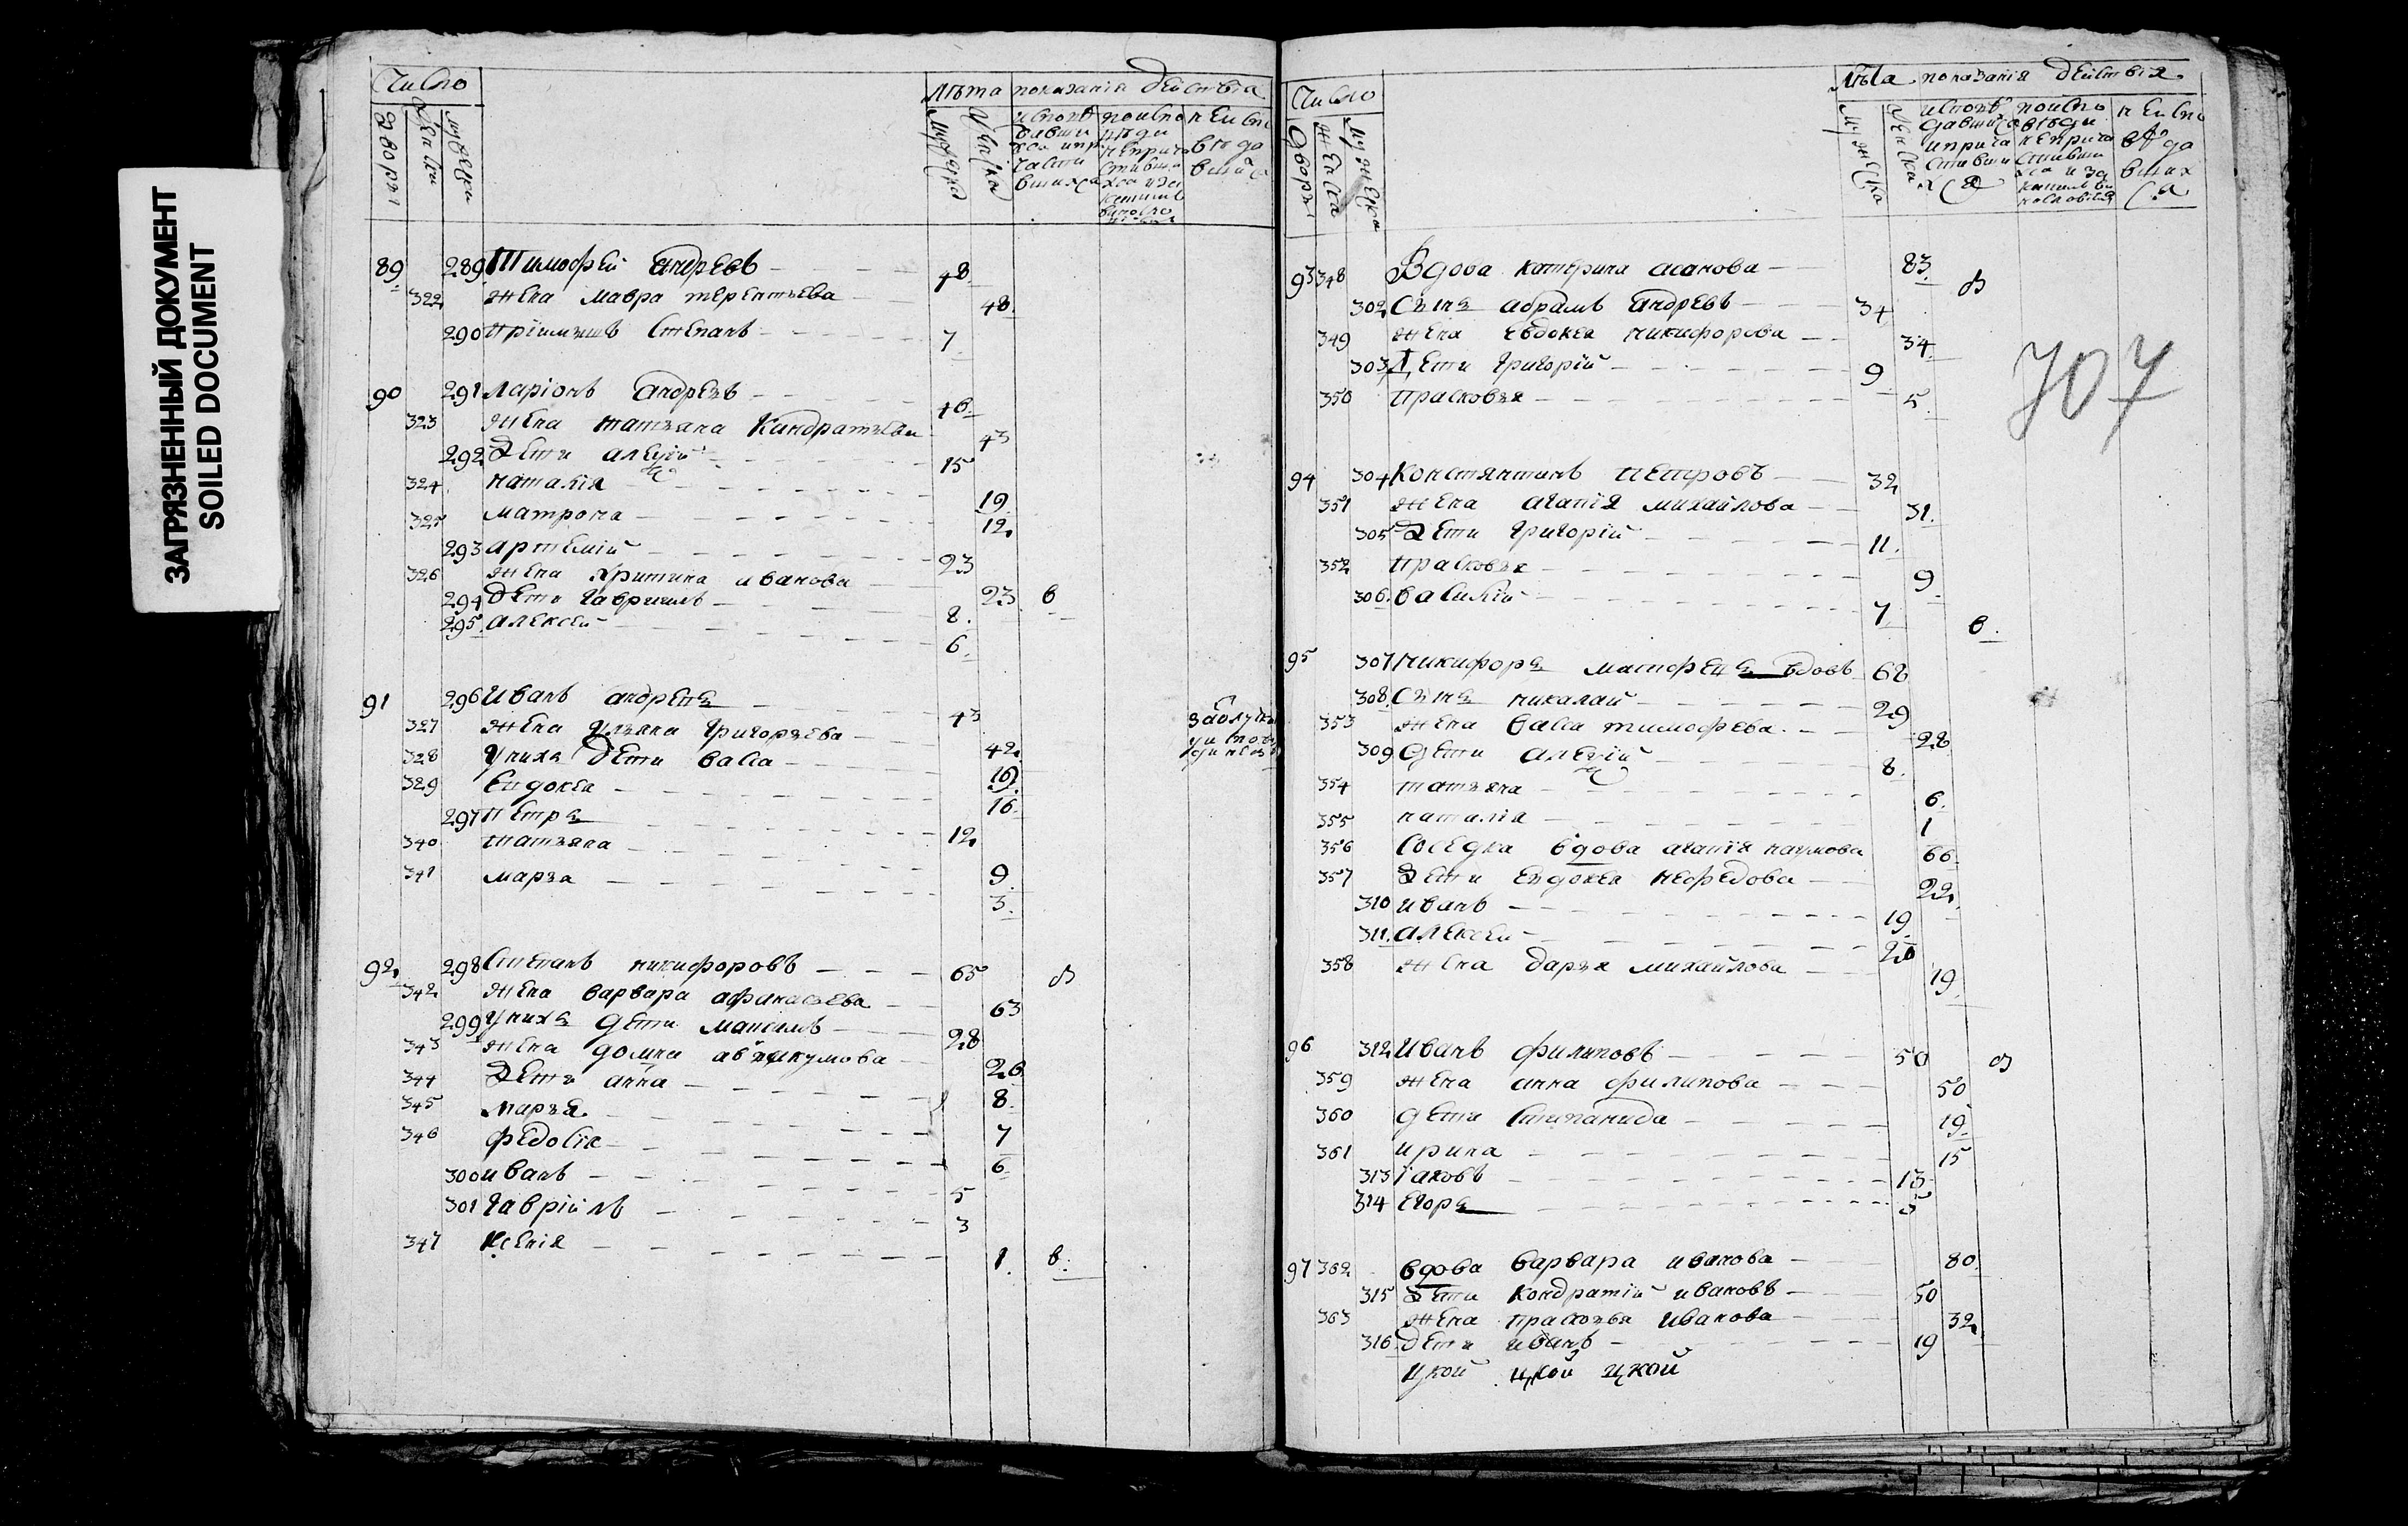 ЗАГРЯЗНЕННЫЙ ДОКУМЕНТ
SOILED DOCUMENT
Число
Лѣта показанія действа
89 289 Тимофей Андреевъ 48
322 жена мавра терентьева 48
290 Пріимышъ Степанъ 7
90 291 Ларіонъ Андреевъ 46
323 жена татьяна Кандратьева 43
292 Дети алексій 15
324 наталія 19
325 матрона 12
293 артемій 23
326 жена христина иванова 23 в
294 дети гаврилъ 8
295 алексей 6
91 296 Иванъ андреевъ 43
327 жена ульяна григорьева 42
328 У нихъ дети васса 19
329 Евдокея 16
297 Петръ 12
340 татьяна 9
341 марья 3
92 298 Степанъ никифоровъ 65
342 жена варвара афанасьева 63
299 У нихъ дети максимъ 28
343 жена домна аввакумова 26
344 Дети анна 8
345 марья 7
346 федосія 6
300 иванъ 5
301 гавріилъ 3
347 Ксенія 1 в
Число
Лѣта показанія действія
707
93 348 Вдова катерина асанова 83
302 Сынъ абрамъ Андреевъ 34
349 жена евдокея никифорова 34
303 Дети григорій 9
350 Прасковья 5
94 304 Константинъ Петровъ 32
351 жена агапія михайлова 31
305 Дети григорій 11
352 Прасковья 9
306 василій 7 в
95 307 Никифоръ вдовъ 68
308 Сынъ никалай 29
353 жена васса тимофева 28
309 дети алексій 8
354 татьяна 6
355 наталія 1
356 Соседка вдова агапія наумова 66
357 Дети евдокея нефедова 22
310 иванъ 19
311 алексей 20
358 жена дарья михайлова 19
96 312 Иванъ филиповъ 50
359 жена анна филипова 50
360 дети степанида 19
361 ирина 15
313 іаковъ 13
314 егоръ 5
97 362 вдова варвара иванова 80
315 Дети Кондратій ивановъ 50
363 жена прасковья иванова 32
316 дети иванъ 19
цкой цкой цкой